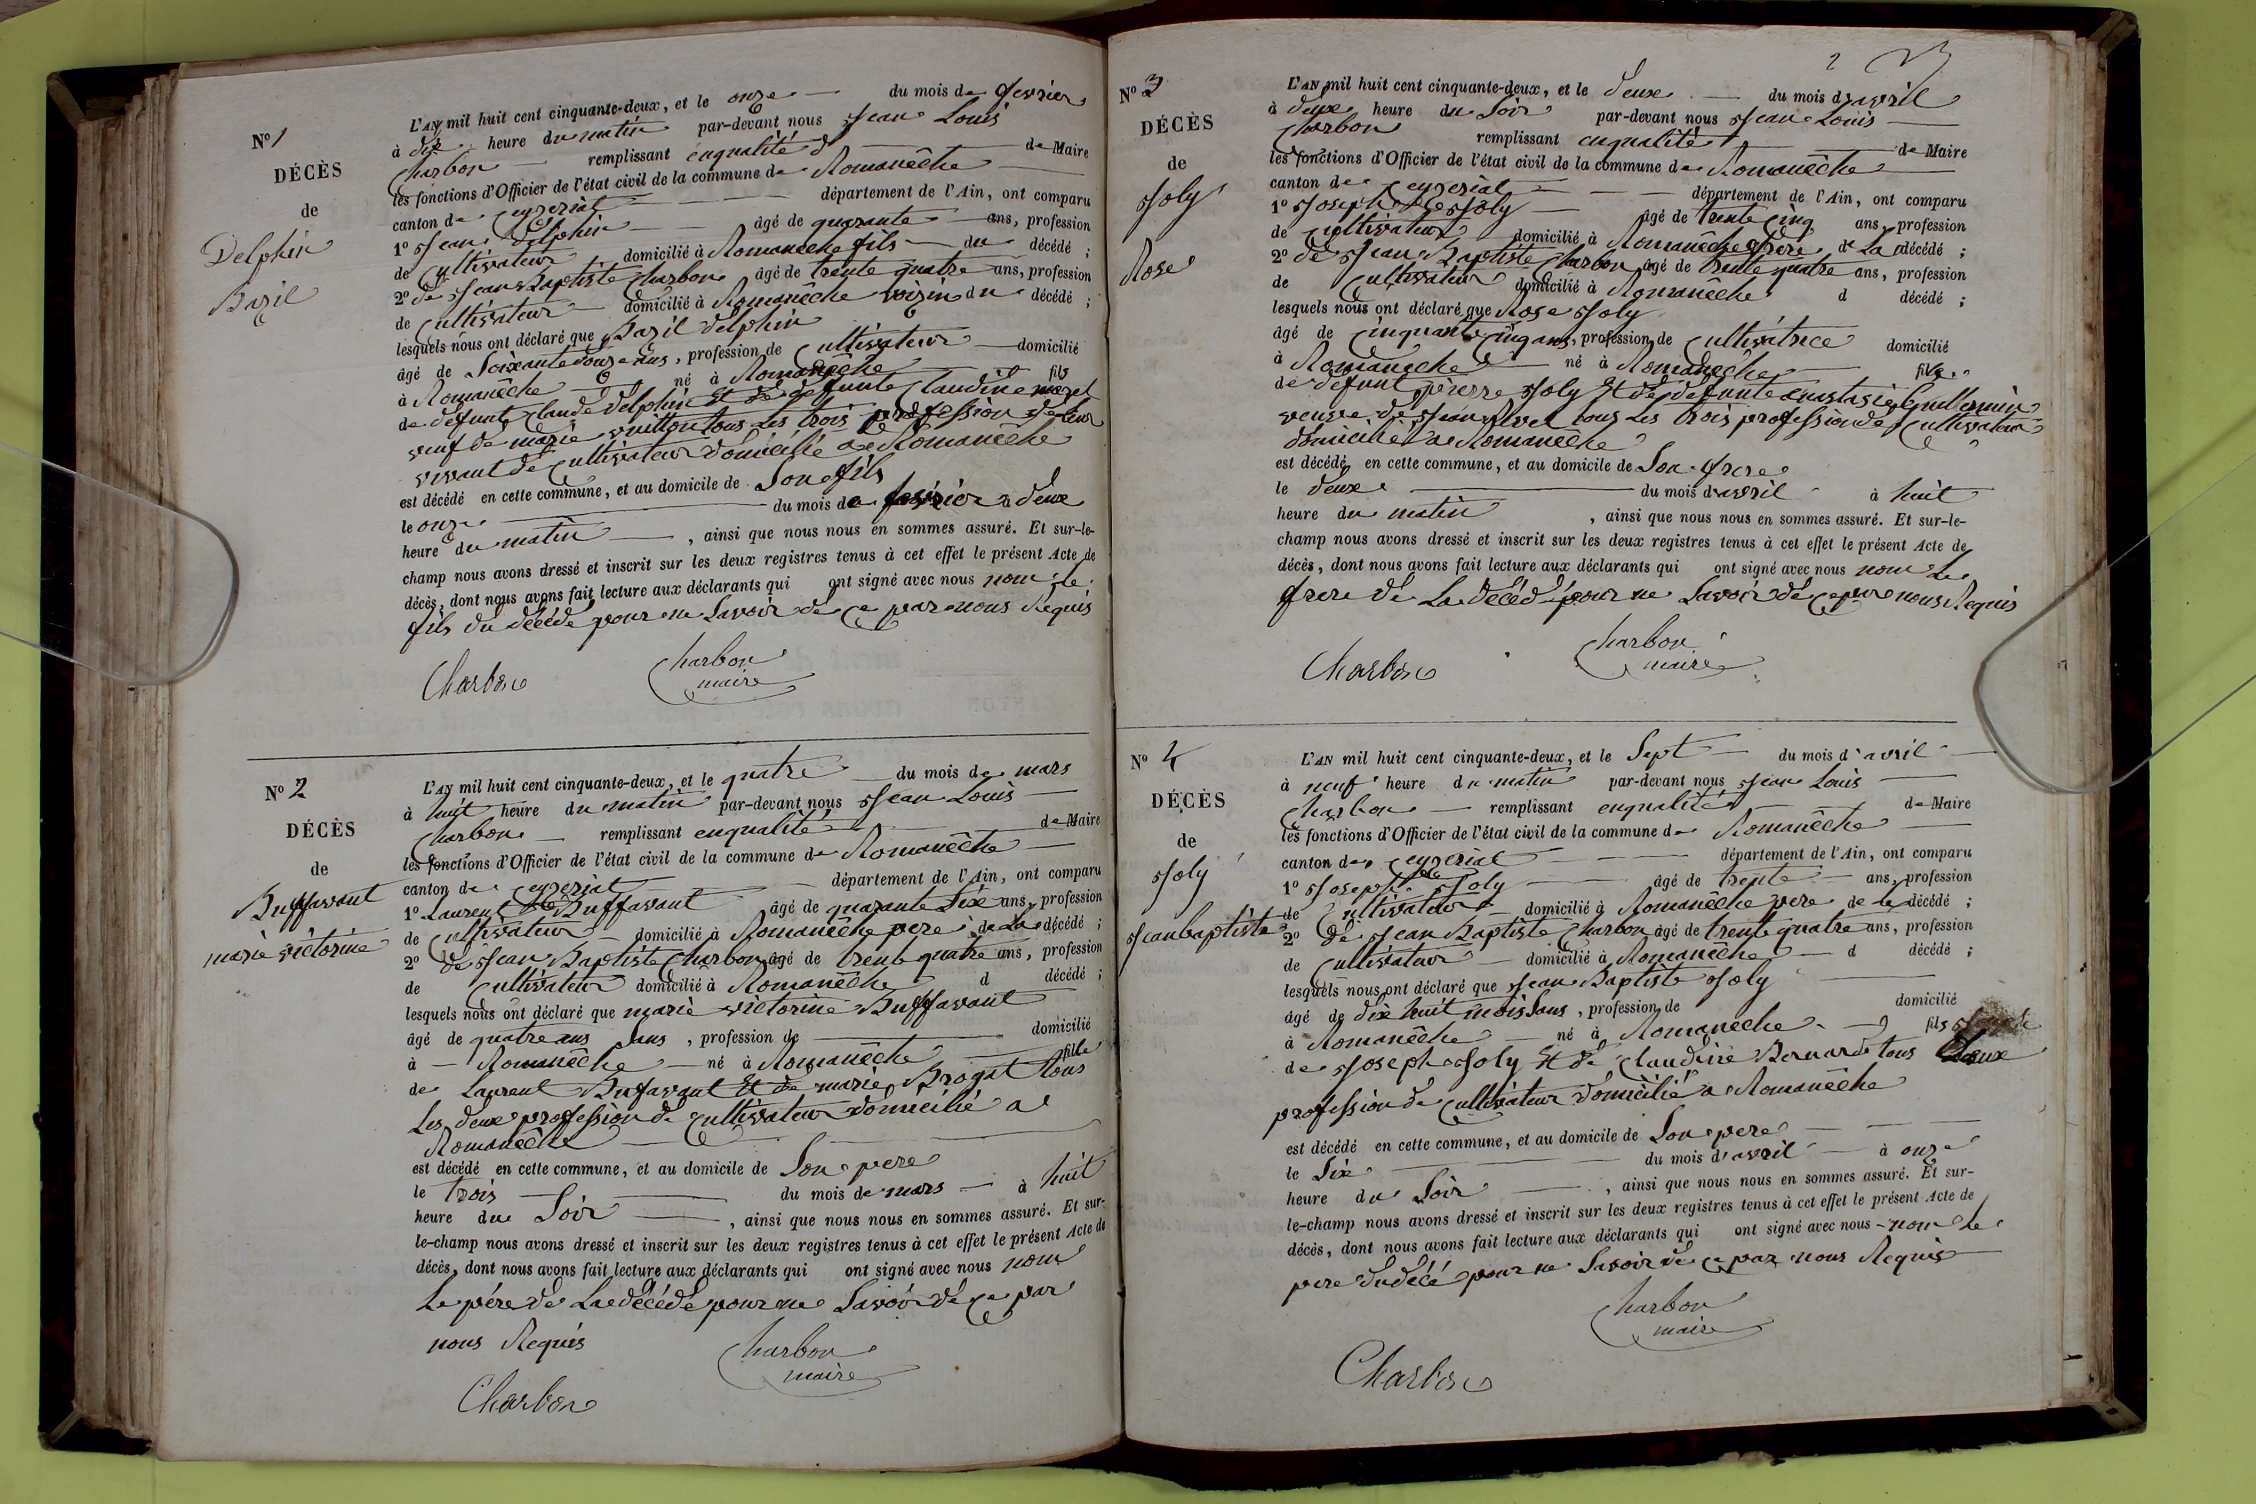 No 1
DÉCÈS
de
Delphin
Bazil
L'AN mil huit cent cinquante-deux, et le onze du mois de fevrier
à dix heure du matin par-devant nous Jean Louis
Charbon remplissant enqualité d de Maire
les fonctions d'Officier de l'état civil de la commune de Romanêche
canton de Ceyzeriat département de l'Ain, ont comparu
1º Jean Delphin âgé de quarante ans, profession
de Cultivateur domicilié à Romanêche fils du décédé ;
2º de Jean Baptiste Charbon âgé de trente quatre ans, profession
de Cultivateur domicilié à Romanêche voizin du décédé ;
lesquels nous ont déclaré que Bazil Delphin
âgé de Soixante douze ans, profession de Cultivateur domicilié
à Romanêche né à Romanêche fils
de defunt Claude Delphin Et de defunte Claudine morel
veuf de marie vuitton tous Les trois profession de leur
vivant de Cultivateur domicilié a Romanêche
est décédé en cette commune, et au domicile de Son fils
le onze du mois de fevrier à deux
heure du matin , ainsi que nous nous en sommes assuré. Et sur-le-
champ nous avons dressé et inscrit sur les deux registres tenus à cet effet le présent Acte de
décès, dont nous avons fait lecture aux déclarants qui ont signé avec nous non le
fils du décédé pour ne Savoir de Ce par nous Requis
Charbon
Charbon
maire
No 2
DÉCÈS
de
Buffavant
marie victorine
L'AN mil huit cent cinquante-deux, et le quatre du mois de mars
à huit heure du matin par-devant nous Jean Louis
Charbon remplissant enqualité de Maire
les fonctions d'Officier de l'état civil de la commune de Romanêche
canton de Ceyzeriat département de l'Ain, ont comparu
1º Laurent Buffavant âgé de quarante Six ans, profession
de Cultivateur domicilié à Romanêche pere de La décédé ;
2º de Jean Baptiste Charbon âgé de trente quatre ans, profession
de Cultivateur domicilié à Romanêche d décédé ;
lesquels nous ont déclaré que marie victorine Buffavant
âgé de quatre ans Sans , profession de domicilié
à Romanêche né à Romanêche fille
de Laurent Buffavant Et de marie Brogat tous
Les deux profession de Cultivateur domicilié a
Romanêche
est décédé en cette commune, et au domicile de Son pere
le trois du mois de mars à huit
heure du Soir , ainsi que nous nous en sommes assuré. Et sur-
le-champ nous avons dressé et inscrit sur les deux registres tenus à cet effet le présent Acte de
décès, dont nous avons fait lecture aux déclarants qui ont signé avec nous non
Le pére de La décédé pour ne Savoir de Ce par
nous Requis
Charbon
maire
Charbon
2
No 3
DÉCÈS
de
Joly
Rose
L'AN mil huit cent cinquante-deux, et le deux du mois d'avril
à deux heure du Soir par-devant nous Jean Louis
Charbon remplissant enqualité de Maire
les fonctions d'Officier de l'état civil de la commune de Romanêche
canton de Ceyzeriat département de l'Ain, ont comparu
1º Joseph Joly âgé de trente Cinq ans, profession
de Cultivateur domicilié à Romanêche frere de La décédé ;
2º de Jean Baptiste Charbon âgé de trente quatre ans, profession
de Cultivateur domicilié à Romanêche d décédé ;
lesquels nous ont déclaré que Rose Joly
âgé de Cinquante Cinq ans, profession de Cultivatrice domicilié
à Romanêche né à Romanêche
de defunt pierre Joly Et de defunte anastasie Guillermin
veuve de Jean tous Les trois profession de Cultivateur
domicilié a Romanêche
est décédé en cette commune, et au domicile de Son frere
le deux du mois d'avril à huit
heure du matin , ainsi que nous nous en sommes assuré. Et sur-le-
champ nous avons dressé et inscrit sur les deux registres tenus à cet effet le présent Acte de
décès, dont nous avons fait lecture aux déclarants qui ont signé avec nous non Le
frere de La décédé pour ne Savoir de Ce par nous Requis
Charbon
Charbon
maire
No 4
DÉCÈS
de
Joly
Jean baptiste
L'AN mil huit cent cinquante-deux, et le Sept du mois d'avril
à neuf heure du matin par-devant nous Jean Louis
Charbon remplissant enqualité de Maire
les fonctions d'Officier de l'état civil de la commune de Romanêche
canton de Ceyzeriat département de l'Ain, ont comparu
1º Joseph Joly âgé de trente ans, profession
de Cultivateur domicilié à Romanêche pere de le décédé ;
2º de Jean Baptiste Charbon âgé de trente quatre ans, profession
de Cultivateur domicilié à Romanêche d décédé ;
lesquels nous ont déclaré que Jean Baptiste Joly
âgé de dix huit mois Sans , profession de domicilié
à Romanêche né à Romanêche fils
de Joseph Joly Et de Claudine Bernard tous deux
profession de Cultivateur domicilié a Romanêche
est décédé en cette commune, et au domicile de Son pere
le Six du mois d'avril à onze
heure du Soir , ainsi que nous nous en sommes assuré. Et sur-
le-champ nous avons dressé et inscrit sur les deux registres tenus à cet effet le présent Acte de
décès, dont nous avons fait lecture aux déclarants qui ont signé avec nous non le
pere du décé pour ne Savoir de Ce par nous Requis
Charbon
maire
Charbon